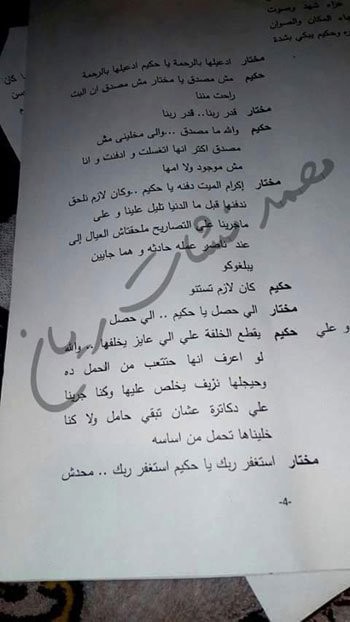 خزاء شهد وصوت
المكان والصوان
وحكيم يبكي بشدة
مختار ادعيلها بالرحمة يا حكيم ادعيلها بالرحمة
حكيم مش مصدق يا مختار مش مصدق ان البت
راحت مننا
مختار قدر ربنا.. قدر ربنا
حكيم والله ما مصدق ...والي مخليني مش
مصدق اكتر انها اتغسلت و ادفنت و انا
مش موجود ولا امها
مختار إكرام الميت دفنه يا حكيم ..وكان لازم نلحق
ندفنها قبل ما الدنيا تليل علينا و على
ماجرينا على التصاريح ملحقتاش العيال إلى
عند ناصر عمله حادثه و هما جايين
يبلغوكو
حكيم كان لازم تستنو
مختار الي حصل يا حكيم .. الي حصل
حكيم يقطع الخلفة علي الي عايز يخلفها .. والله
لو اعرف انها حتتعب من الحمل ده
وحيجلها نزيف يخلص عليها وكنا جرينا
علي دكاترة عشان تبقي حامل ولا كنا
خليناها تحمل من اساسه
مختار استغفر ربك يا حكيم استغفر ربك .. محدش
-4-
و علي
كان
محمد نشأت ريان